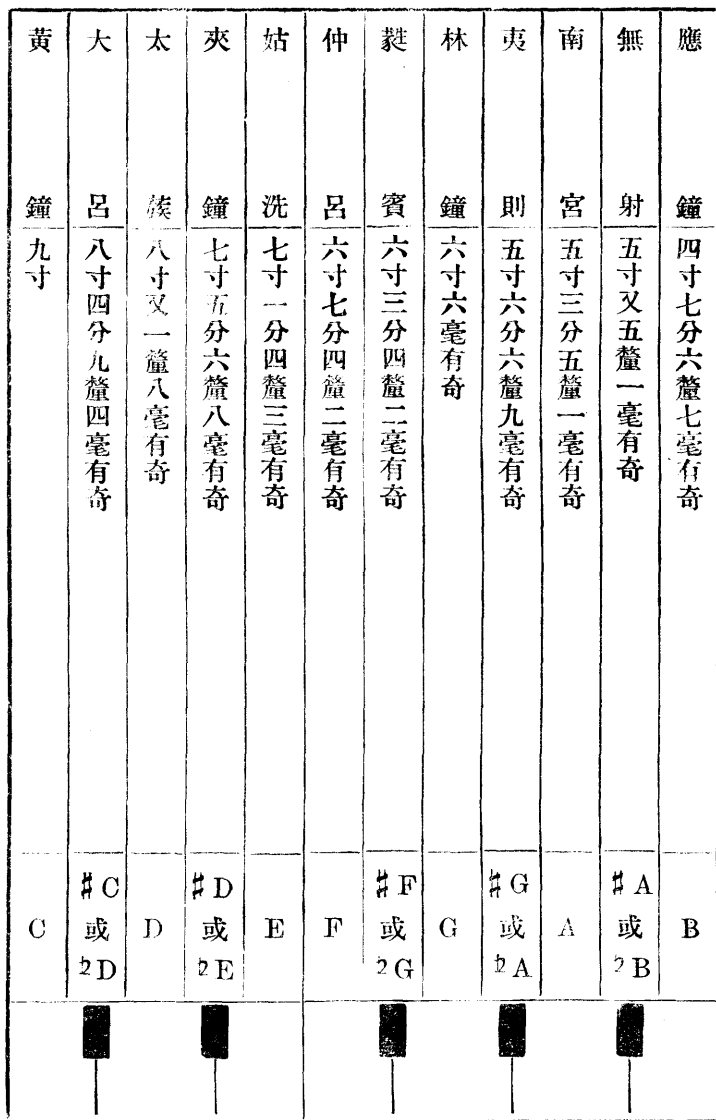 黃鐘
九寸
C
大呂
八寸四分九釐四毫有奇
♯C
或
♭D
太蔟
八寸又一釐八毫有奇
D
夾鐘
七寸五分六釐八毫有奇
♯D
或
♭E
姑洗
七寸一分四釐三毫有奇
E
仲呂
六寸七分四釐二毫有奇
F
蕤賓
六寸三分四釐二毫有奇
♯F
或
♭G
林鐘
六寸六毫有奇
G
夷則
五寸六分六釐九毫有奇
♯G
或
♭A
南宮
五寸三分五釐一毫有奇
A
無射
五寸又五釐一毫有奇
♯A
或
♭B
應鐘
四寸七分六釐七毫有奇
B